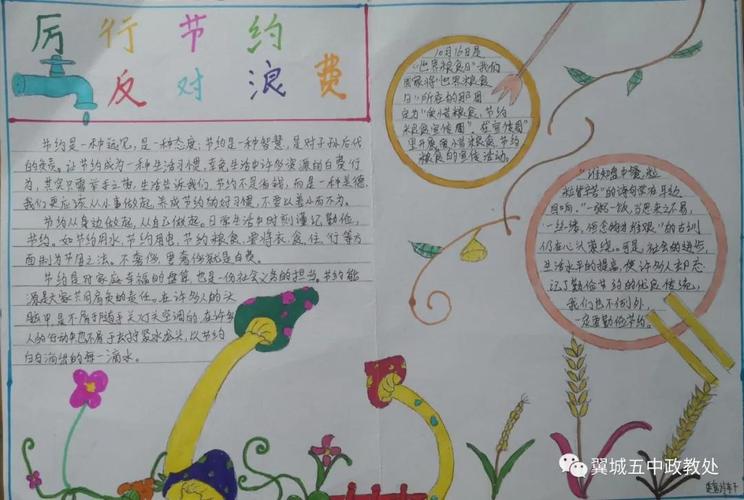 厉行节约
反对浪费
节约是一种远见，是一种态度，节约是一种智慧，是对子孙后代
的负责。让节约成为一种生活习惯，
其实只需举手之劳，生活告诉我们，节约不是省钱，而是一种美德，
我们更应该从小事做起，养成节约的好习惯，不要以善小而不为。
节约从身边做起，从自己做起。日常生活中时刻谨记勤俭，
节约。如节约用水，节约用电，节约粮食，要将衣、食、住、行等方
面制为节用之法。不奢侈，里奢侈就是白费。
节约是对家庭幸福的盘算，也是一份社会义务的担当。节约能
源是大家共同肩负的责任。在许多人的头
脑中，是不屑于随手关对天空调的，在许多
人的行动中也不屑于去拧紧水龙头，以节约
白白滴淌的每一滴水。
10月16日是
"世界粮食日"我们
国家将"世界粮食
日"所在的那周
定为"爱惜粮食、节约
粮食宣传周"，在宣传周
里开展爱惜粮食、节约
粮食的宣传活动。
"谁知盘中餐，粒
粒皆辛苦"的诗句常在耳边、
目中。"一粥一饭，当思来之不易，
一丝一缕，恒念物力维艰"的古训
仍在心头萦绕。可是，社会的进步，
生活水平的提高，使许多人却忘
记了勤俭节约的优良传统，
我们也不例外，
一定要勤俭节约。
翼城五中政教处